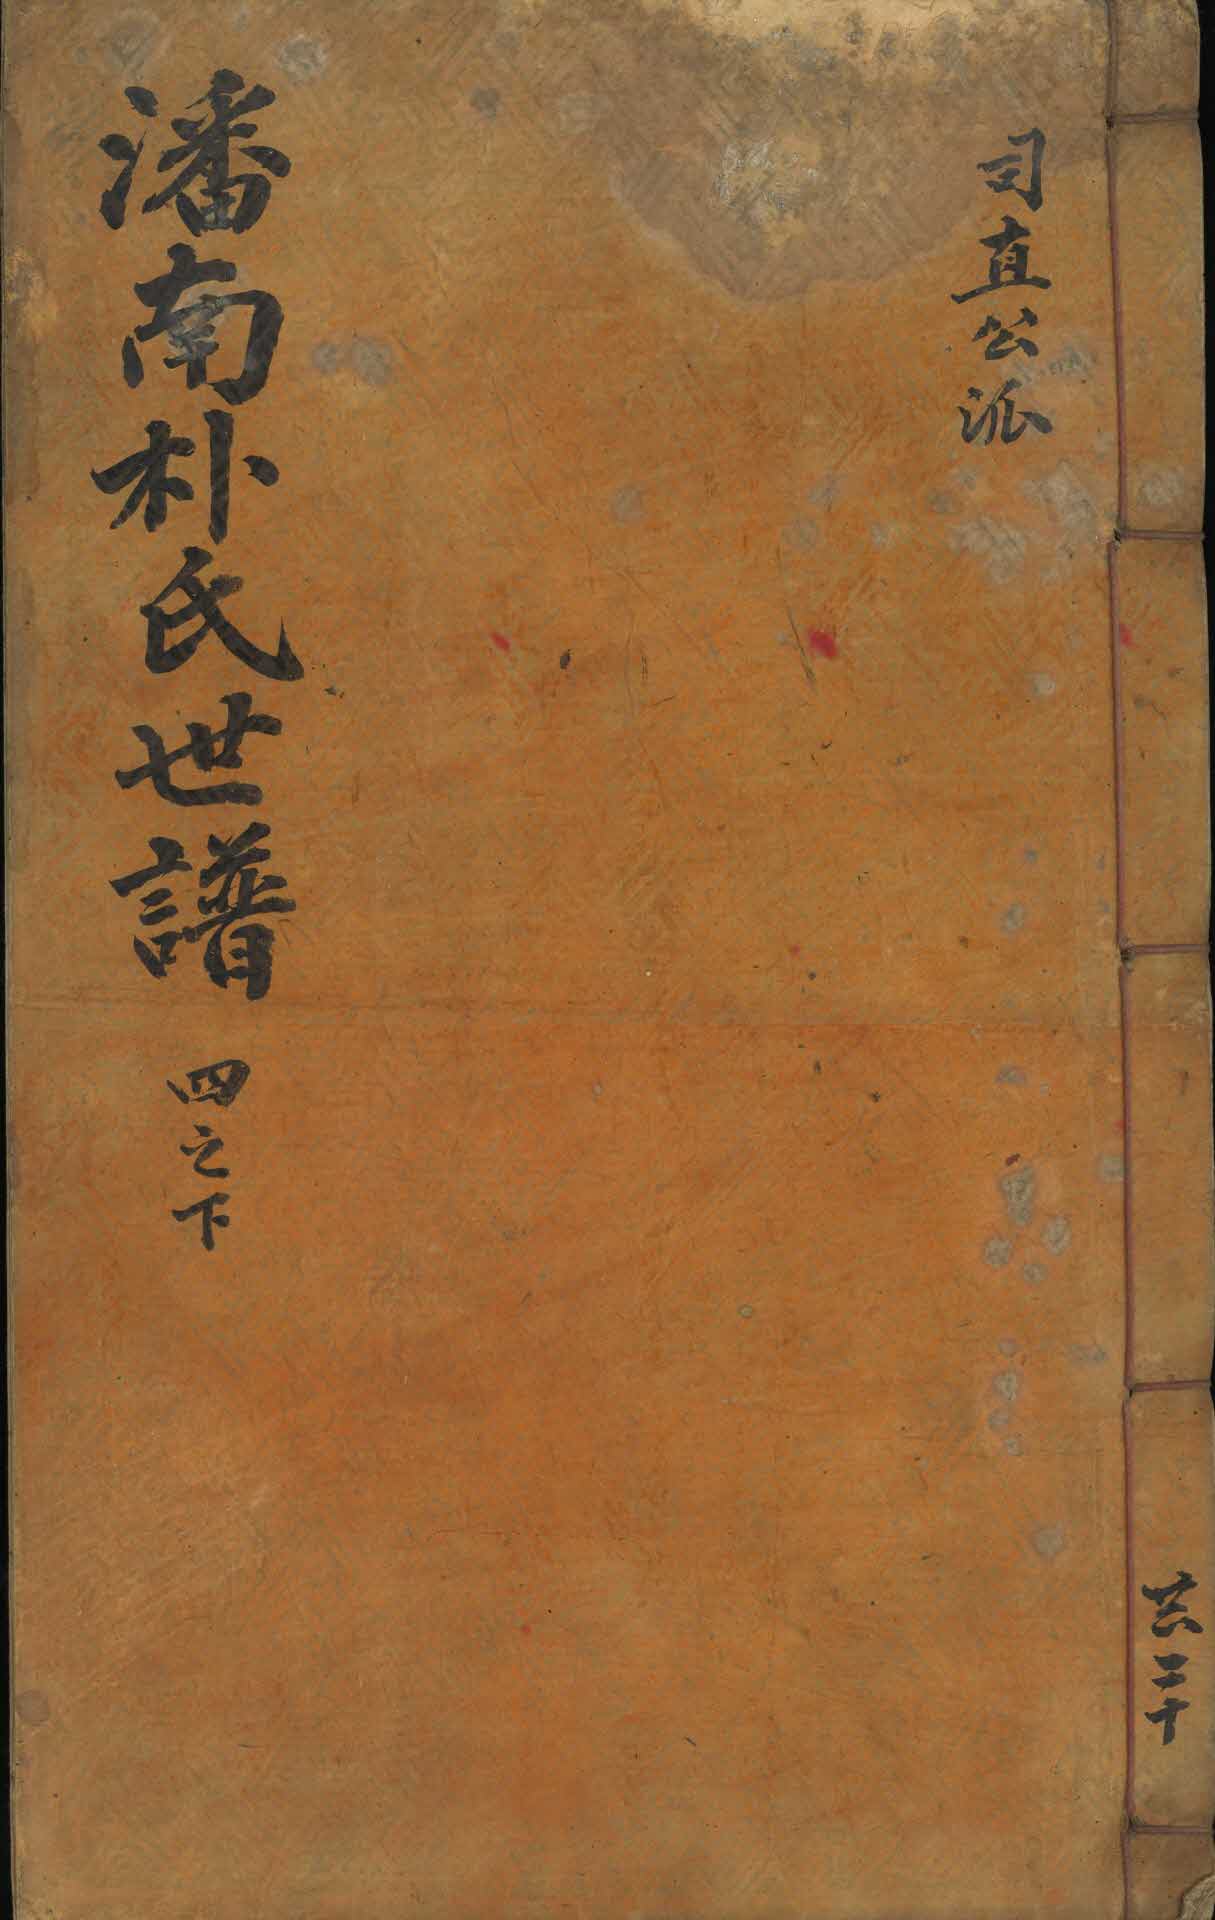 司直公派
潘南朴氏世譜 四之下
共二十